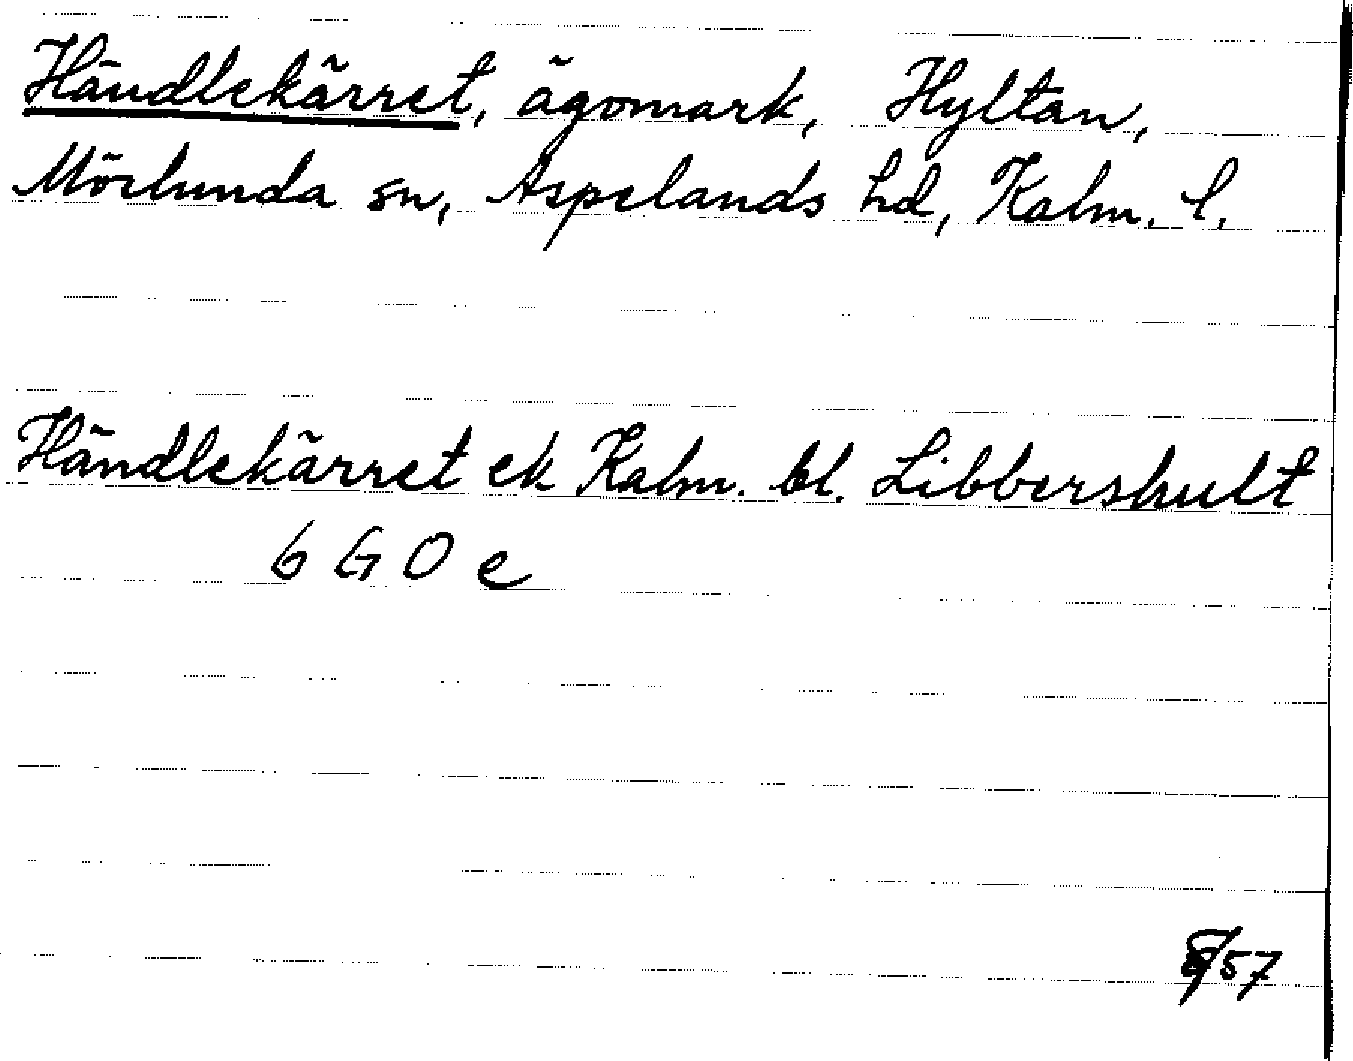 Händlekärret, ägomark, Hyltan,
Mörlunda sn, Aspelands hd, Kalm. l.
Händlekärret ek Kalm. bl. Libbershult
6 G O e
57